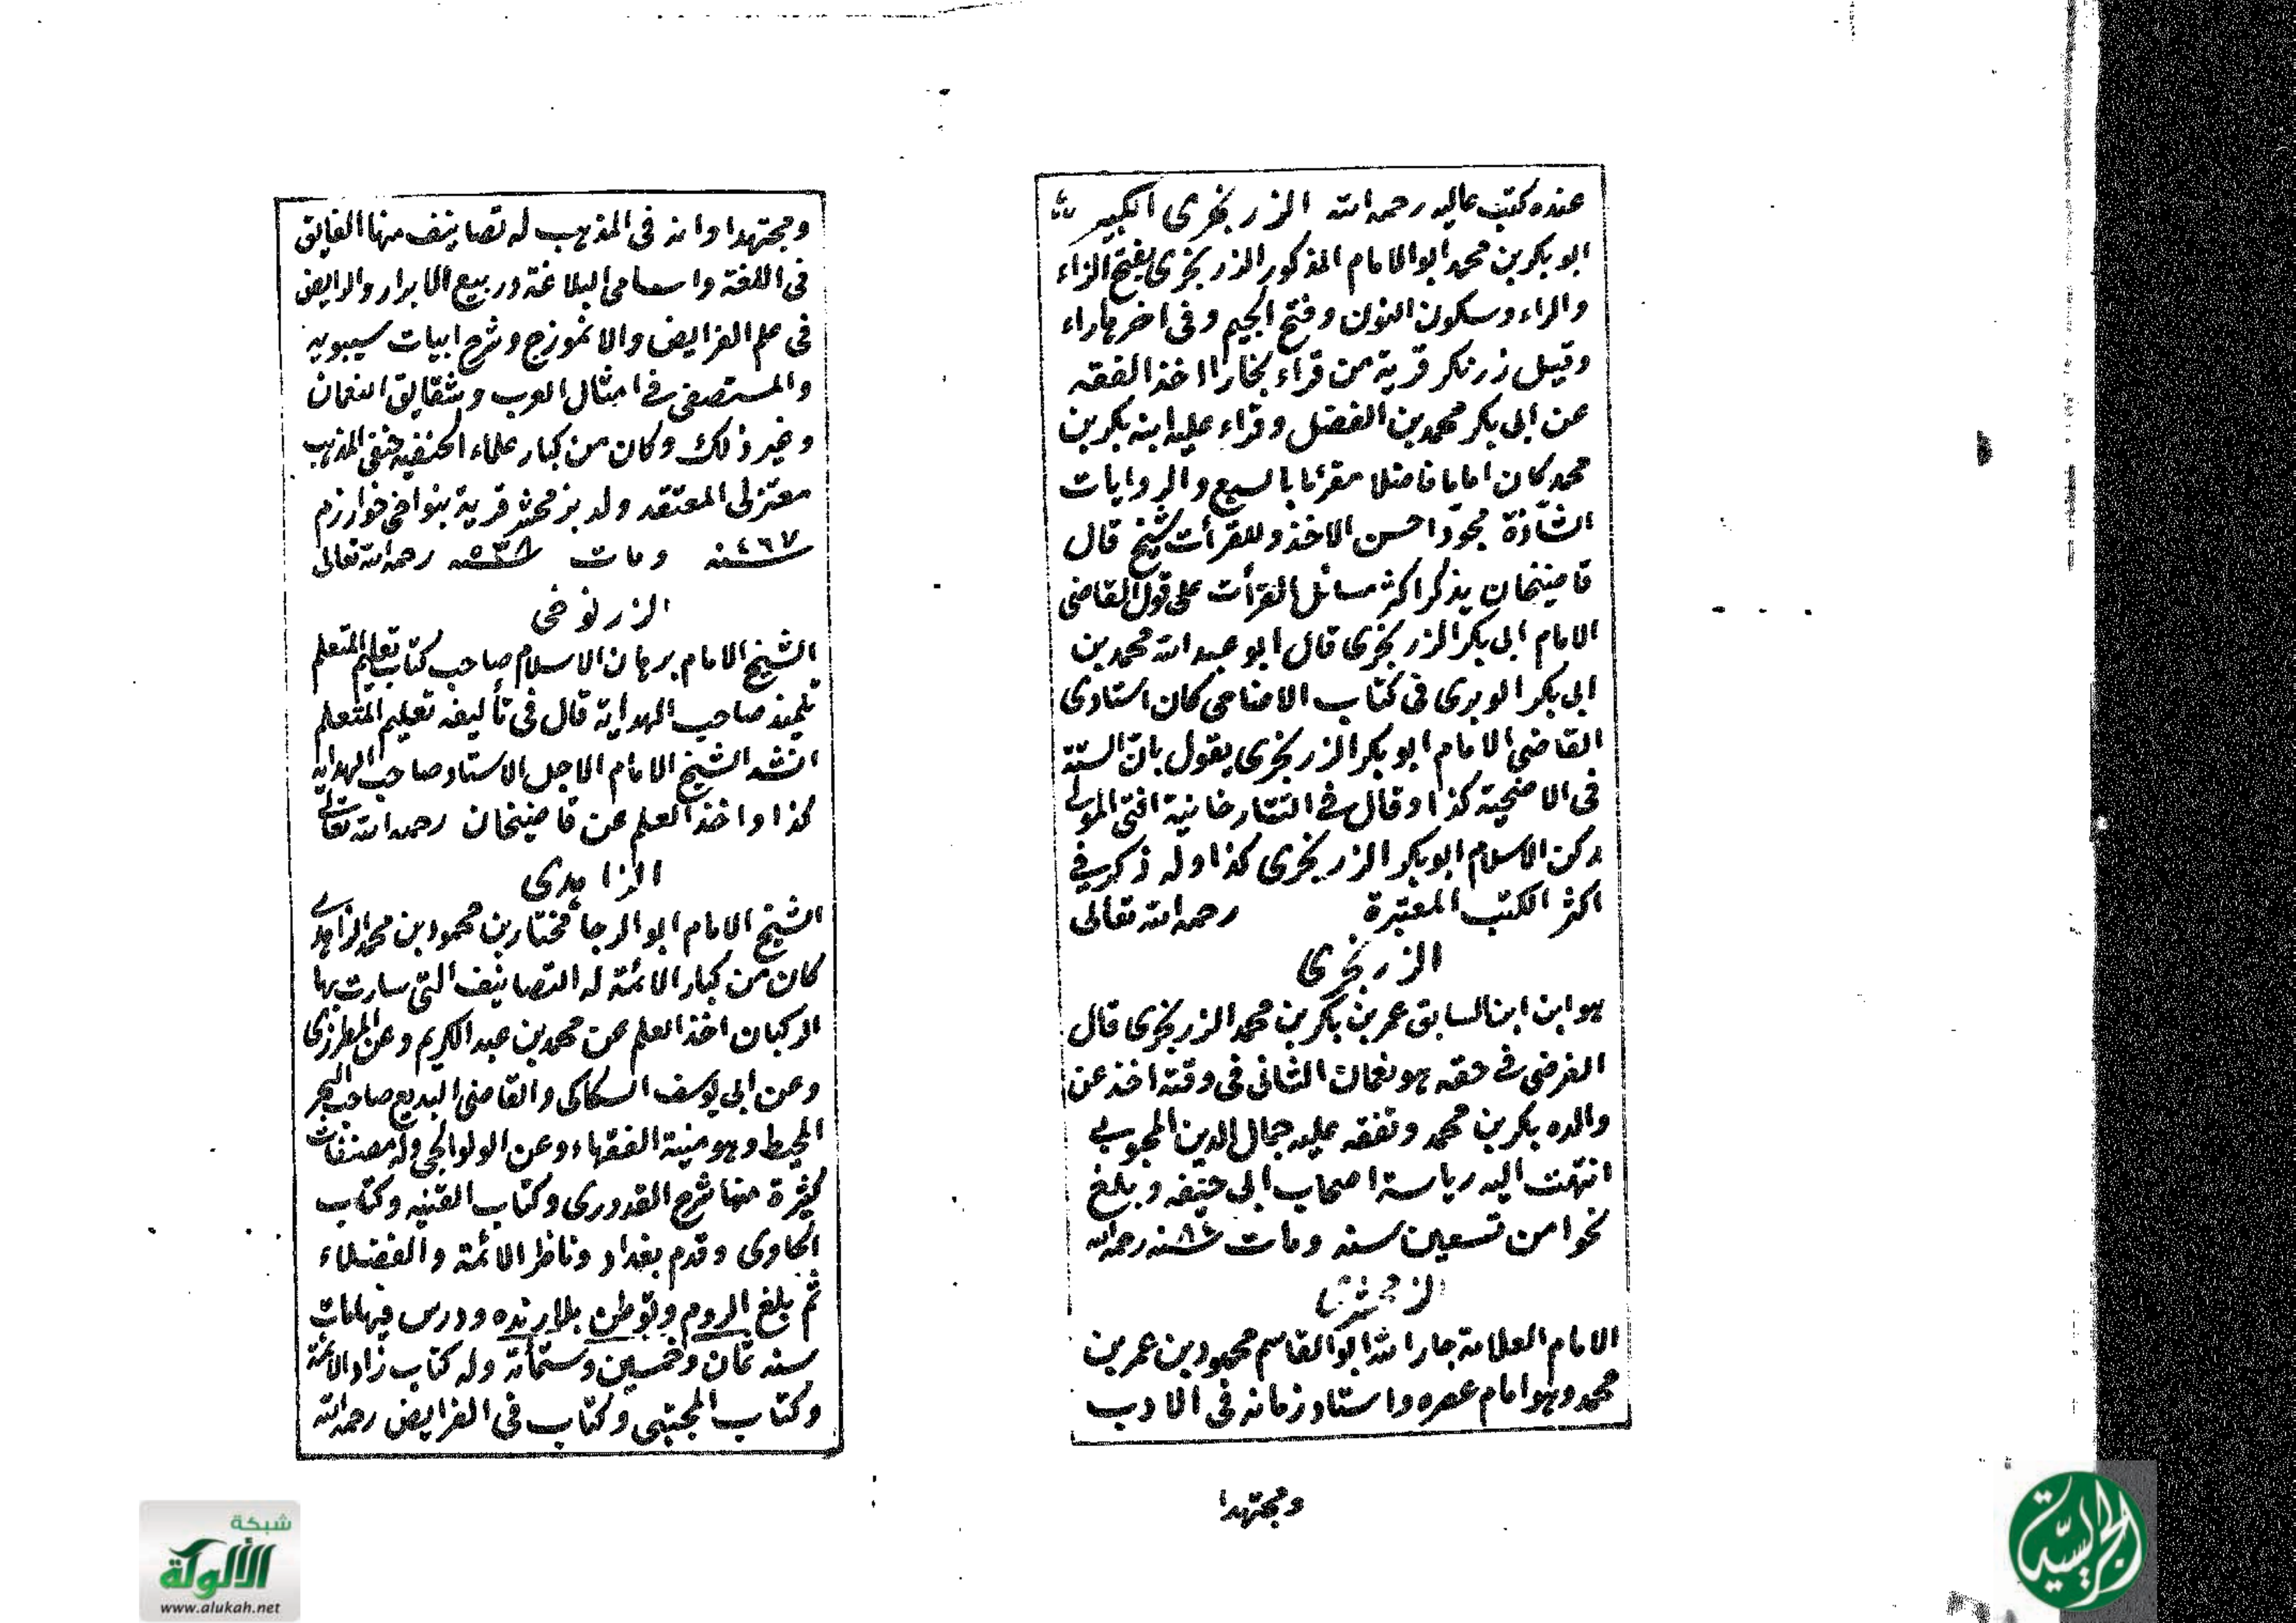 عنده كتب عاليه رحمه الله الزرنجرى الكبير
ابو بكر بن محمد ابو الامام المذكور الزرنجرى بفتح الزاء
والراء وسكون النون وفتح الجيم وفى اخرها راء
وقيل زرنكر قرية من قراء بخارا اخذ الفقه
عن ابى بكر محمد بن الفضل وقراء عليه ابنه بكر بن
محمد كان اماما فاضلا مقرئا بالسبع والروايات
الشاذة مجودا حسن الاخذ وللقرأت شيخ قال
قاضيخان يذكر اكثر مسائل القرأت على قول القاضى
الامام ابى بكر الزرنجرى قال ابو عبد الله محمد بن
ابى بكر الوبرى فى كتاب الاضاحى كان استادى
القاضى الامام ابو بكر الزرنجرى يقول بان السنة
فى الاضحية كذا وقال فى التتارخانية افتى المولى
ركن الاسلام ابو بكر الزرنجرى كذا وله ذكر فى
اكثر الكتب المعتبرة رحمه الله تعالى
الزرنجرى
هو ابن ابن السابق عمر بن بكر بن محمد الزرنجرى قال
الفرضى فى حقه هو نعمان الثانى فى وقته اخذ عن
والده بكر بن محمد وتفقه عليه جمال الدين المحبوبى
انتهت اليه رياسة اصحاب ابى حنيفه وبلغ
نحوا من تسعين سنه ومات سنه رحمه الله
الزمخشرى
الامام العلامة جار الله ابو القاسم محمود بن عمر بن
محمد وهو امام عصره واستاد زمانه فى الادب
ومجتهدا
ومجتهدا وانه فى المذهب له تصانيف منها الفايق
فى اللغة واسامى البلاغة وربيع الابرار والرايض
فى علم الفرايض والانموزج وشرح ابيات سيبويه
والمستصفى فى امثال العرب وشقايق النعمان
وغير ذلك وكان من كبار علماء الحنفيه حنفى المذهب
معتزلى المعتقد ولد بزمخشر قرية بنواحى خوارزم
سنه ٤٦٧ ومات سنه ٥٣٨ رحمه الله تعالى
الزرنوخى
الشيخ الامام برهان الاسلام صاحب كتاب تعليم المتعلم
تلميذ صاحب الهداية قال فى تأليفه تعليم المتعلم
انشد الشيخ الامام الاجل الاستاد صاحب الهدايه
كذا واخذ العلم عن قاضيخان رحمه الله تعالى
الزاهدى
الشيخ الامام ابو الرجا مختار بن محمود بن محمد الزاهدى
كان من كبار الائمة له التصانيف التى سارت بها
الركبان اخذ العلم عن محمد بن عبد الكريم وعن المطرزى
وعن ابى يوسف السكاكى والقاضى البديع صاحب البحر
المحيط وهو منية الفقهاء وعن الولوالجى وله مصنفات
كثيرة منها شرح القدورى وكتاب القنيه وكتاب
الحاوى وقدم بغداد وناظر الائمة والفضلاء
ثم بلغ الروم وتوطن بلارنده ودرس فيها مات
سنه ثمان وخمسين وستمأئة وله كتاب زاد الائمة
وكتاب المجتبى وكتاب فى الفرايض رحمه الله
شبكة
الألوكة
www.alukah.net